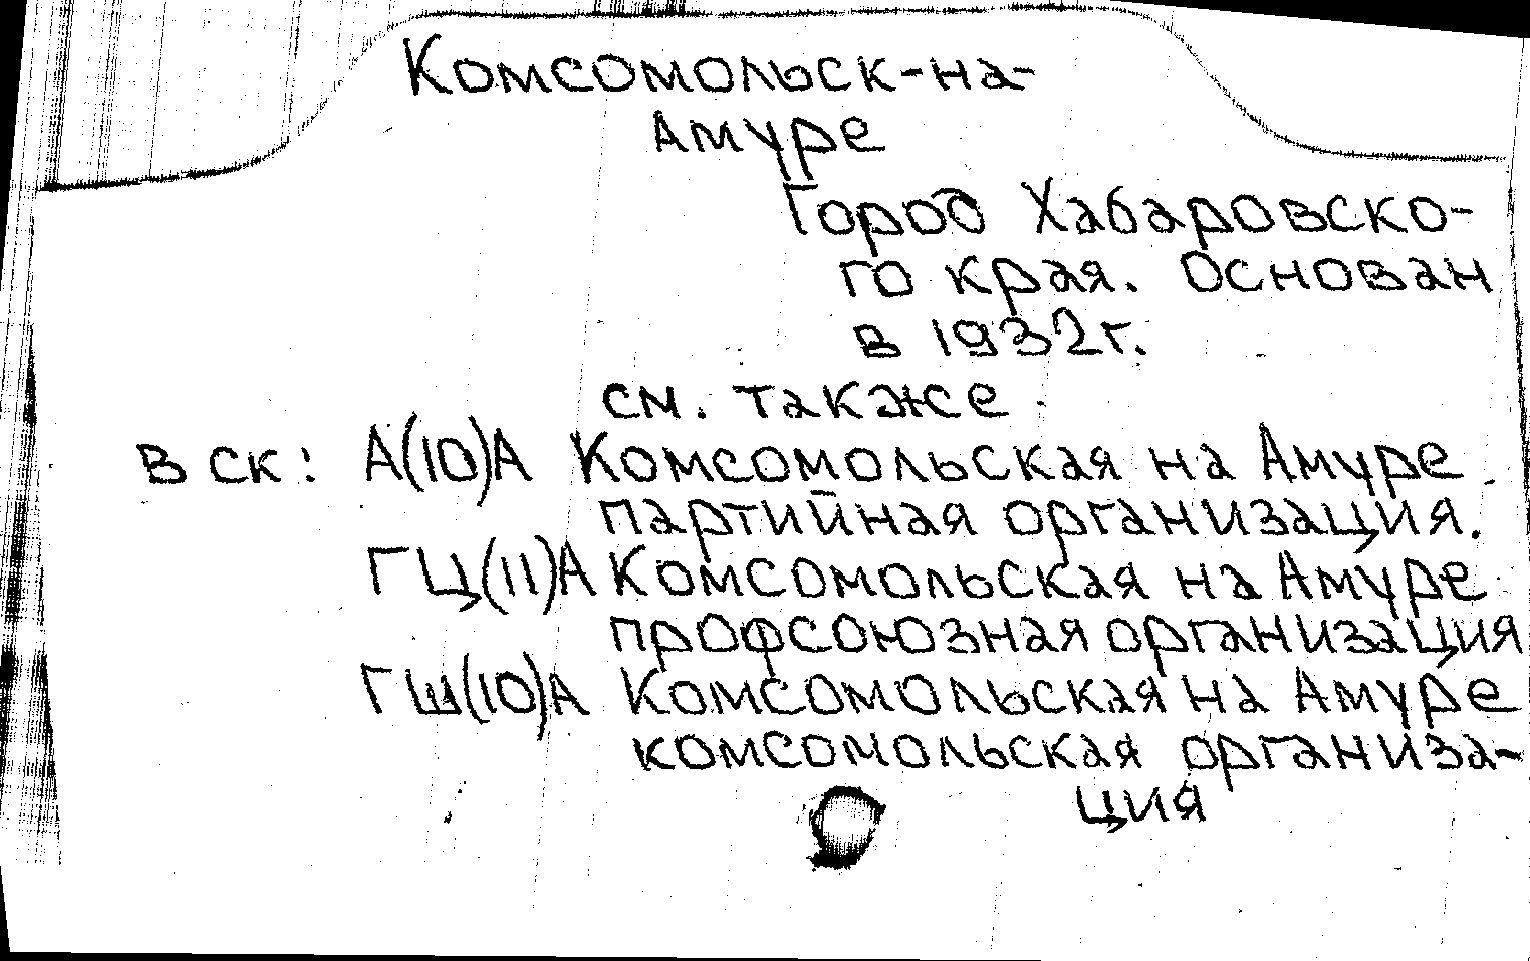 Комсомольск-на-
Амуре
Город Хабаровско-
го края. Основан
в 1932г.
см. также
В ск: А(10)А Комсомольская на Амуре
партийная организация.
ГЦ(11)А Комсомольская на Амуре
профсоюзная организация
ГШ(10)А Комсомольская на Амуре
комсомольская организа-
ция